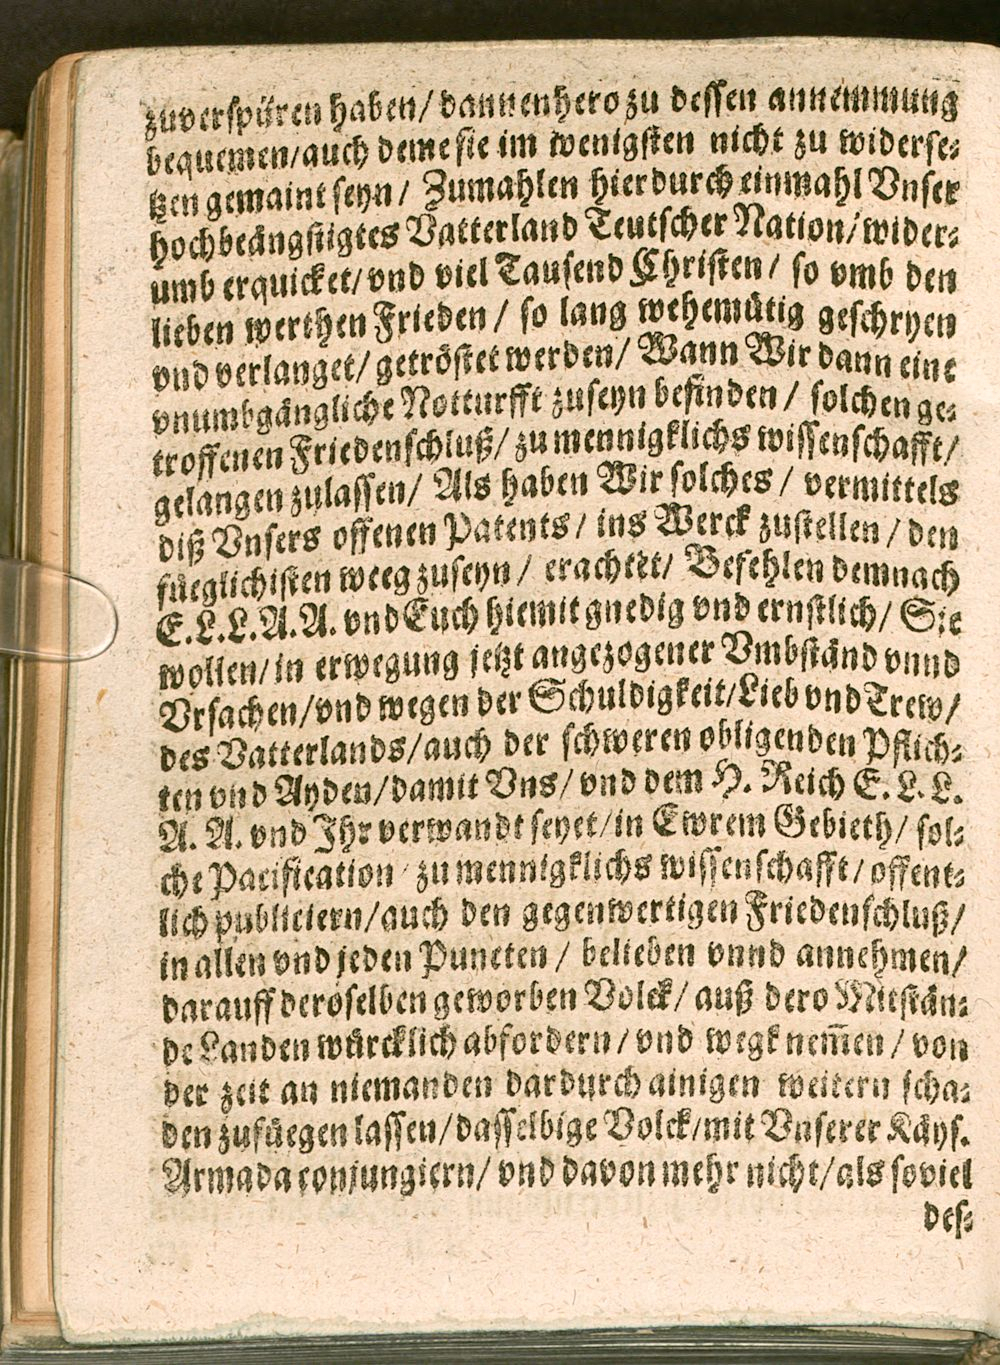 zuverspüren haben/ dannenhero zu dessen annemmung
bequemen/auch deme sie im wenigsten nicht zu widerse⸗
tzen gemaint seyn/ Zumahlen hierdurch einmahl Vnser
hochbeängstigtes Vatterland Teutscher Nation/wider⸗
umb erquicket/vnd viel Tausend Christen/ so vmb den
lieben werthen Frieden/ so lang wehemütig geschryen
vnd verlanget/ getröstet werden/ Wann Wir dann eine
vnumbgängliche Notturfft zuseyn befinden/ solchen ge⸗
troffenen Friedenschluß/ zu mennigklichs wissenschafft/
gelangen zulassen/ Als haben Wir solches/ vermittels
diß Vnsers offenen Patents/ ins Werck zustellen/ den
füeglichisten weeg zuseyn/ erachtet/ Befehlen demnach
E.L.L.A.A. vnd Euch hiemit gnedig vnd ernstlich/ Sie
wollen/in erwegung jetzt angezogener Vmbständ vnnd
Vrsachen/vnd wegen der Schuldigkeit/Lieb vnd Trew/
des Vatterlands/auch der schweren obligenden Pflich⸗
ten vnd Ayden/damit Vns/ vnd dem H. Reich E. L. L.
A. A. vnd Ihr verwandt seyet/in Ewrem Gebieth/ sol⸗
che Pacification/ zu mennigklichs wissenschafft/ offent⸗
lich publiciern/auch den gegenwertigen Friedenschluß/
in allen vnd jeden Puncten/ belieben vnnd annehmen/
darauff deroselben geworben Volck/ auß dero Mitstän⸗
de Landen würcklich abfordern/vnd wegk nem̃en/ von
der zeit an niemanden dardurch ainigen weitern scha⸗
den zufüegen lassen/dasselbige Volck/mit Vnserer Käys.
Armada conjungiern/ vnd davon mehr nicht/als soviel
des⸗